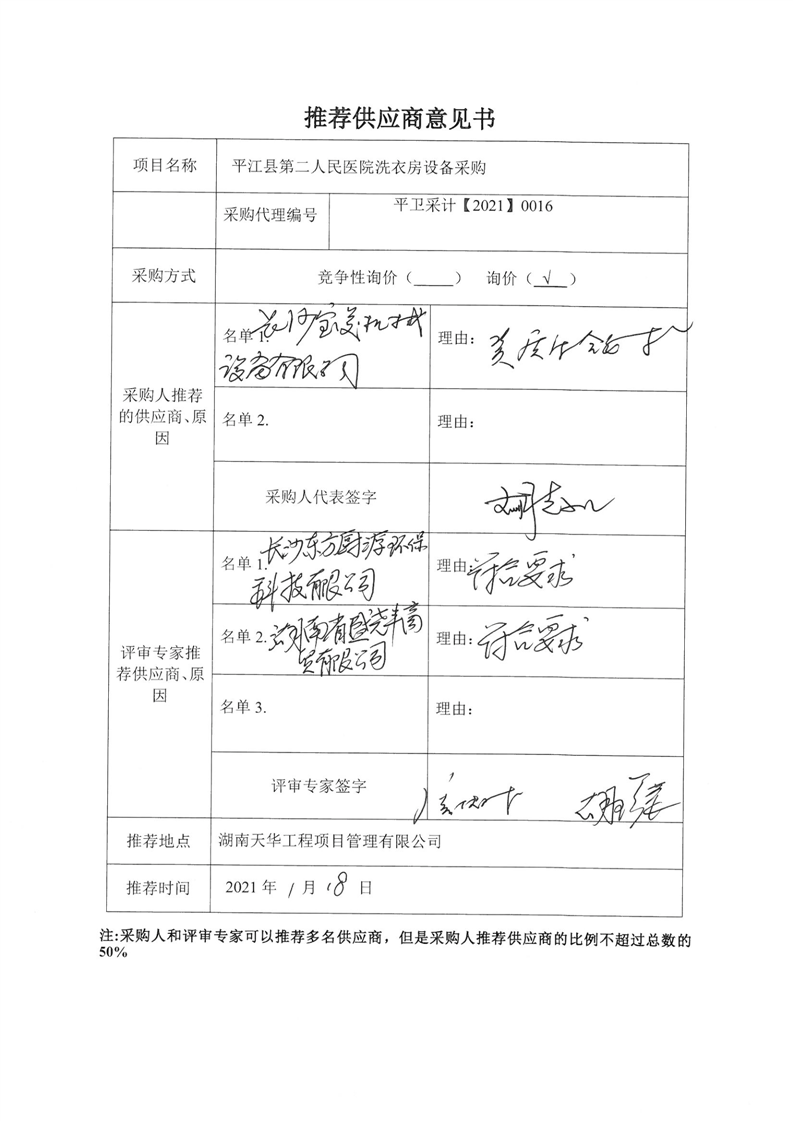 推荐供应商意见书
项目名称
平江县第二人民医院洗衣房设备采购
采购代理编号
平卫采计【2021】0016
采购方式
竞争性询价（____） 询价（_√_）
采购人推荐
的供应商、原
因
名单 1.长沙宝美机械
设备有限公司
理由：资质
名单 2.
理由：
采购人代表签字
评审专家推
荐供应商、原
因
名单 1.长沙东方厨源环保
科技有限公司
理由：符合要求
名单 2.湖南省盛尧丰商
贸有限公司
理由：符合要求
名单 3.
理由：
评审专家签字
推荐地点
湖南天华工程项目管理有限公司
推荐时间
2021 年 1 月 18 日
注:采购人和评审专家可以推荐多名供应商，但是采购人推荐供应商的比例不超过总数的
50%